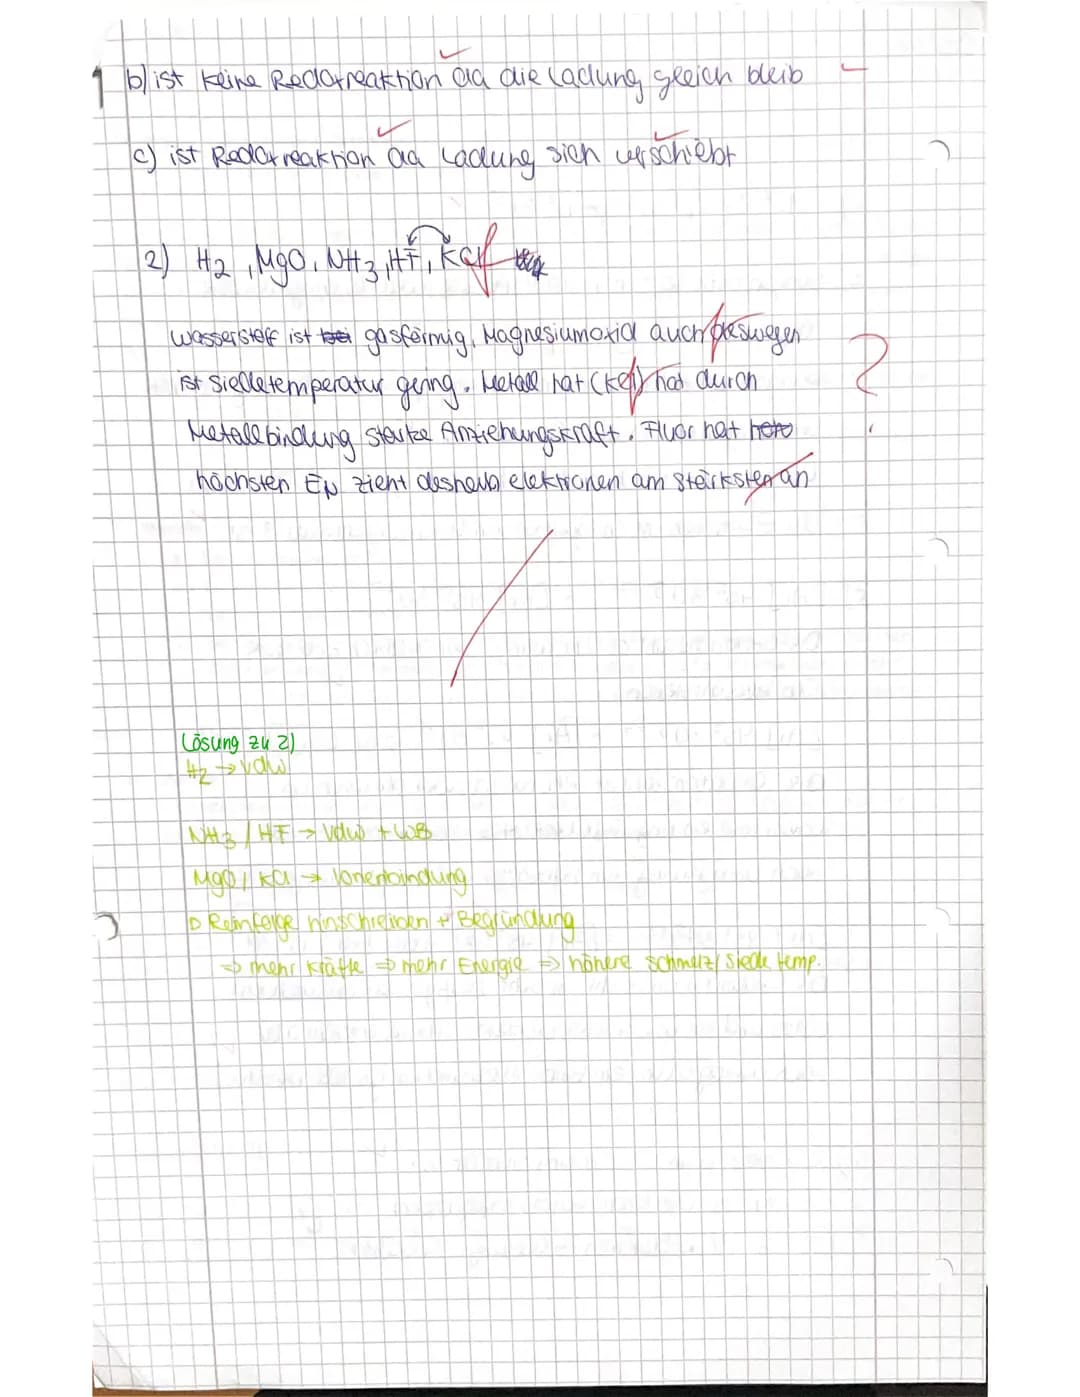 1 b) ist keine Redoxreaktion da die Ladung gleich bleib
c) ist Redoxreaktion da Ladung sich verschiebt
2) H2, MgO, NH3, HF, KCl
Wasserstoff ist bei gasförmig, Magnesiumoxid auch deswegen
ist Siedetemperatur gering. Metall hat (KCl) hat durch
Metallbindung starke Anziehungskraft. Fluor hat
höchsten EN zieht deshalb elektronen am stärksten an
?
Lösung zu 2)
H2 → vdW
NH3 / HF → VdW + WB
MgO / KCl → Ionenbindung
Reinfolge hinschreiben + Begründung
⇒ mehr Kräfte ⇒ mehr Energie ⇒ höhere Schmelz/Siede temp.